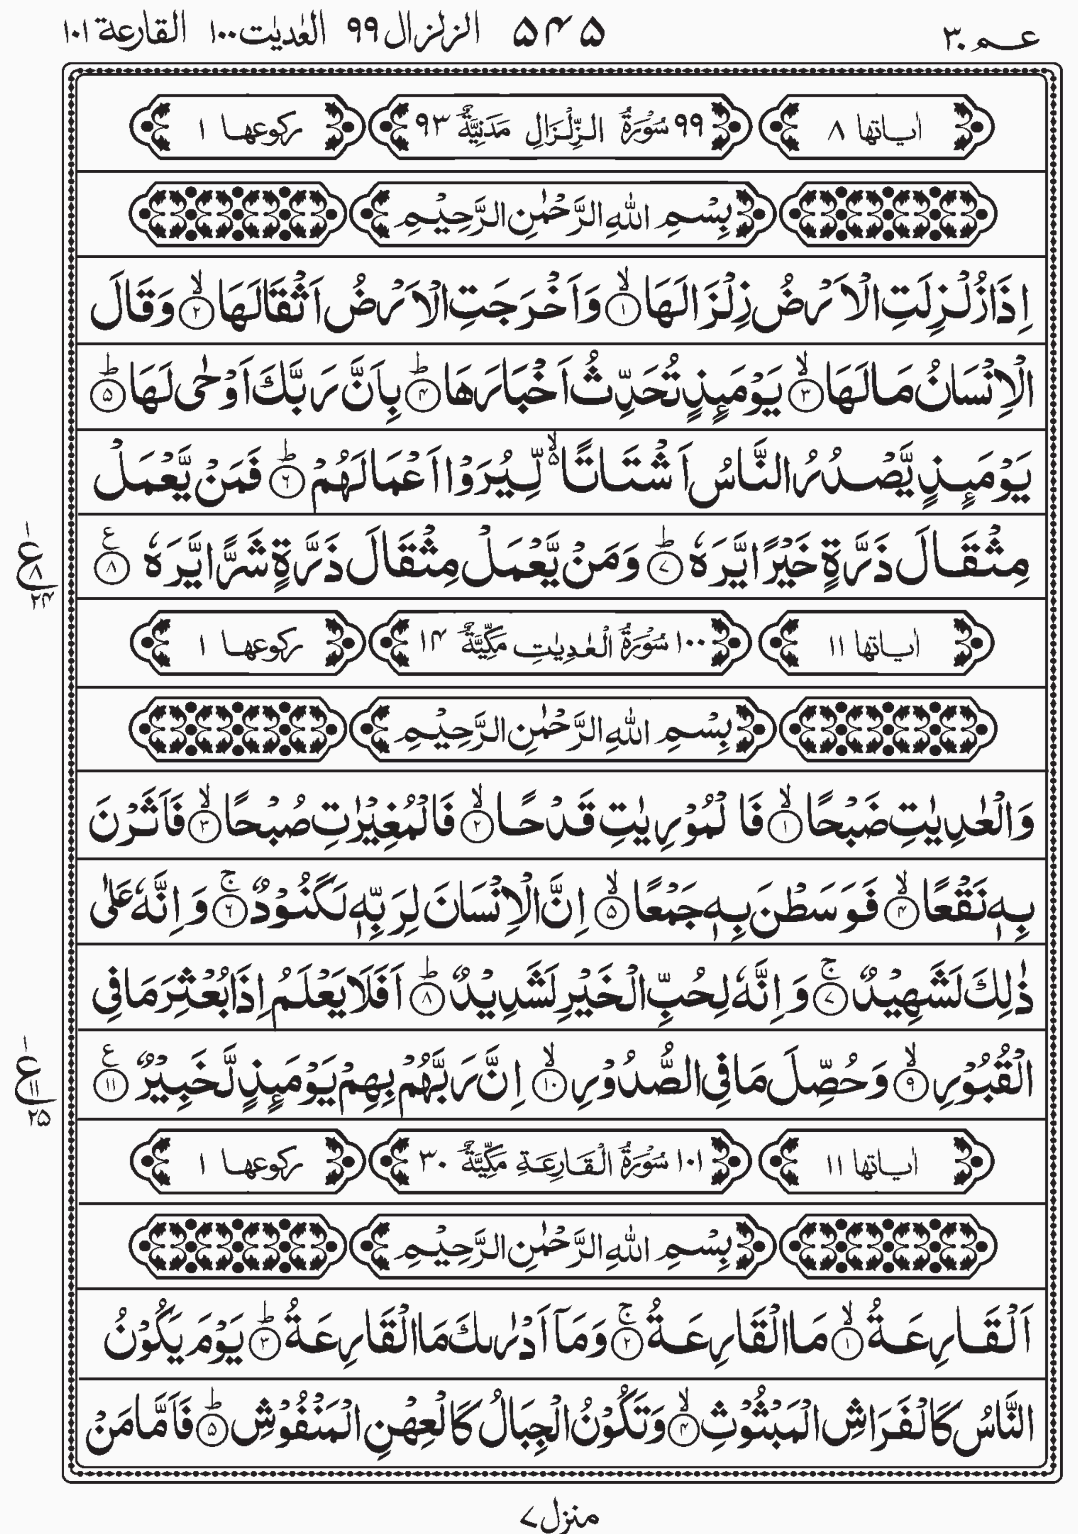 عـم ۳۰ ۵۴۵ الزلزال ۹۹ العٰدیٰت ۱۰۰ القارعة ۱۰۱
اٰیاتها ۸ ۹۹ سُوْرَةُ الزِّلْزَالِ مَدَنِیَّةٌ ۹۳ رکوعها ۱
بِسْمِ اللّٰهِ الرَّحْمٰنِ الرَّحِیْمِ
اِذَا زُلْزِلَتِ الْاَرْضُ زِلْزَالَهَا ۙ﴿۱﴾ وَ اَخْرَجَتِ الْاَرْضُ اَثْقَالَهَا ۙ﴿۲﴾ وَ قَالَ
الْاِنْسَانُ مَا لَهَا ۙ﴿۳﴾ یَوْمَىِٕذٍ تُحَدِّثُ اَخْبَارَهَا ؕ﴿۴﴾ بِاَنَّ رَبَّكَ اَوْحٰی لَهَا ؕ﴿۵﴾
یَوْمَىِٕذٍ یَّصْدُرُ النَّاسُ اَشْتَاتًا ۙ۬ لِّیُرَوْا اَعْمَالَهُمْ ؕ﴿۶﴾ فَمَنْ یَّعْمَلْ
مِثْقَالَ ذَرَّةٍ خَیْرًا یَّرَهٗ ؕ﴿۷﴾ وَ مَنْ یَّعْمَلْ مِثْقَالَ ذَرَّةٍ شَرًّا یَّرَهٗ ﴿۸﴾ ع
۱ ع ۸ ۲۴
اٰیاتها ۱۱ ۱۰۰ سُوْرَةُ الْعٰدِیٰتِ مَکِّیَّةٌ ۱۴ رکوعها ۱
بِسْمِ اللّٰهِ الرَّحْمٰنِ الرَّحِیْمِ
وَ الْعٰدِیٰتِ ضَبْحًا ۙ﴿۱﴾ فَالْمُوْرِیٰتِ قَدْحًا ۙ﴿۲﴾ فَالْمُغِیْرٰتِ صُبْحًا ۙ﴿۳﴾ فَاَثَرْنَ
بِهٖ نَقْعًا ۙ﴿۴﴾ فَوَسَطْنَ بِهٖ جَمْعًا ۙ﴿۵﴾ اِنَّ الْاِنْسَانَ لِرَبِّهٖ لَكَنُوْدٌ ۚ﴿۶﴾ وَ اِنَّهٗ عَلٰی
ذٰلِكَ لَشَهِیْدٌ ۚ﴿۷﴾ وَ اِنَّهٗ لِحُبِّ الْخَیْرِ لَشَدِیْدٌ ؕ﴿۸﴾ اَفَلَا یَعْلَمُ اِذَا بُعْثِرَ مَا فِی
الْقُبُوْرِ ۙ﴿۹﴾ وَ حُصِّلَ مَا فِی الصُّدُوْرِ ۙ﴿۱۰﴾ اِنَّ رَبَّهُمْ بِهِمْ یَوْمَىِٕذٍ لَّخَبِیْرٌ ﴿۱۱﴾ ع
۱ ع ۱۱ ۲۵
اٰیاتها ۱۱ ۱۰۱ سُوْرَةُ الْقَارِعَةِ مَکِّیَّةٌ ۳۰ رکوعها ۱
بِسْمِ اللّٰهِ الرَّحْمٰنِ الرَّحِیْمِ
اَلْقَارِعَةُ ۙ﴿۱﴾ مَا الْقَارِعَةُ ۚ﴿۲﴾ وَ مَاۤ اَدْرٰىكَ مَا الْقَارِعَةُ ؕ﴿۳﴾ یَوْمَ یَكُوْنُ
النَّاسُ كَالْفَرَاشِ الْمَبْثُوْثِ ۙ﴿۴﴾ وَ تَكُوْنُ الْجِبَالُ كَالْعِهْنِ الْمَنْفُوْشِ ؕ﴿۵﴾ فَاَمَّا مَنْ
منزل ۷